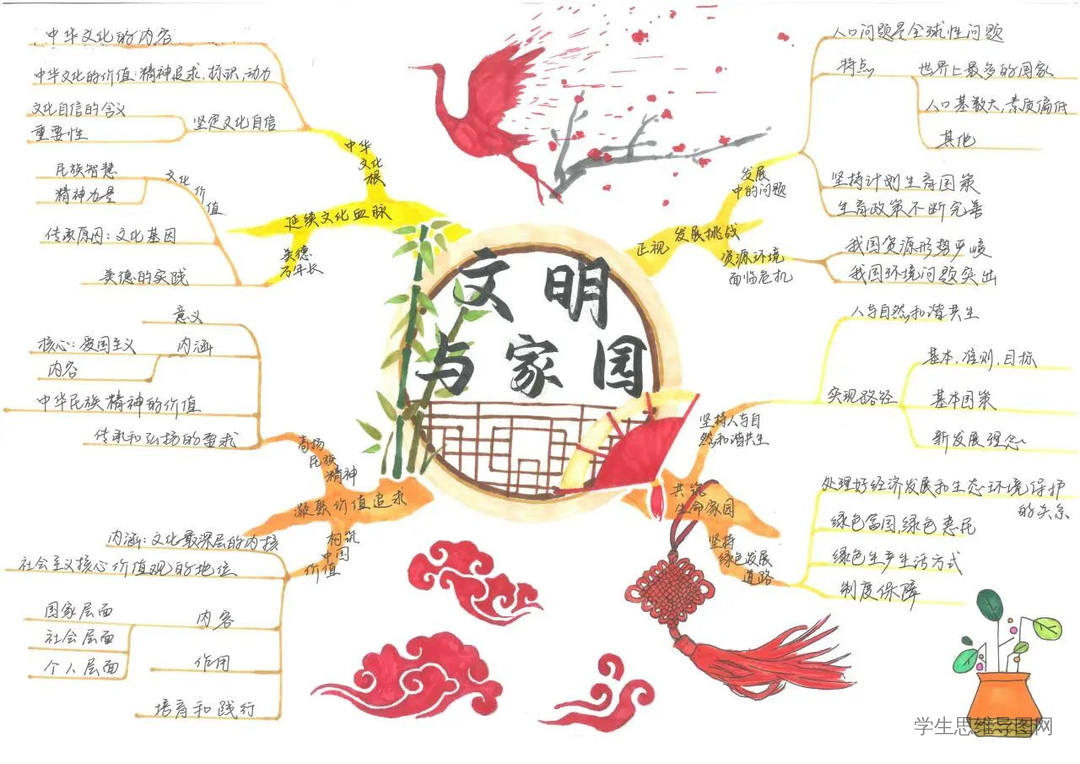 文明
与家园
延续文化血脉
中华
文化
根
中华文化的内容
中华文化的价值:精神追求,标识,动力
坚定文化自信
文化自信的含义
重要性
美德
万年长
文化
价
值
民族智慧
精神力量
传承原因:文化基因
美德的实践
凝聚价值追求
高扬
民族
精神
意义
内涵
核心:爱国主义
内容
中华民族精神的价值
传承和弘扬的要求
构筑
中国
价值
内涵:文化最深层的内核
社会主义核心价值观的地位
内容
国家层面
社会层面
个人层面
作用
培育和践行
正视 发展挑战
发展
中的问题
人口问题是全球性问题
特点
世界上最多的国家
人口基数大,素质偏低
其他
坚持计划生育国策
生育政策不断完善
资源环境
面临危机
我国资源形势严峻
我国环境问题突出
共筑
生命家园
坚持人与自
然和谐共生
人与自然和谐共生
实现路径
基本,准则,目标
基本国策
新发展理念
坚持
绿色发展
道路
处理好经济发展和生态环境保护
的关系
绿色富国,绿色惠民
绿色生产生活方式
制度保障
学生思维导图网